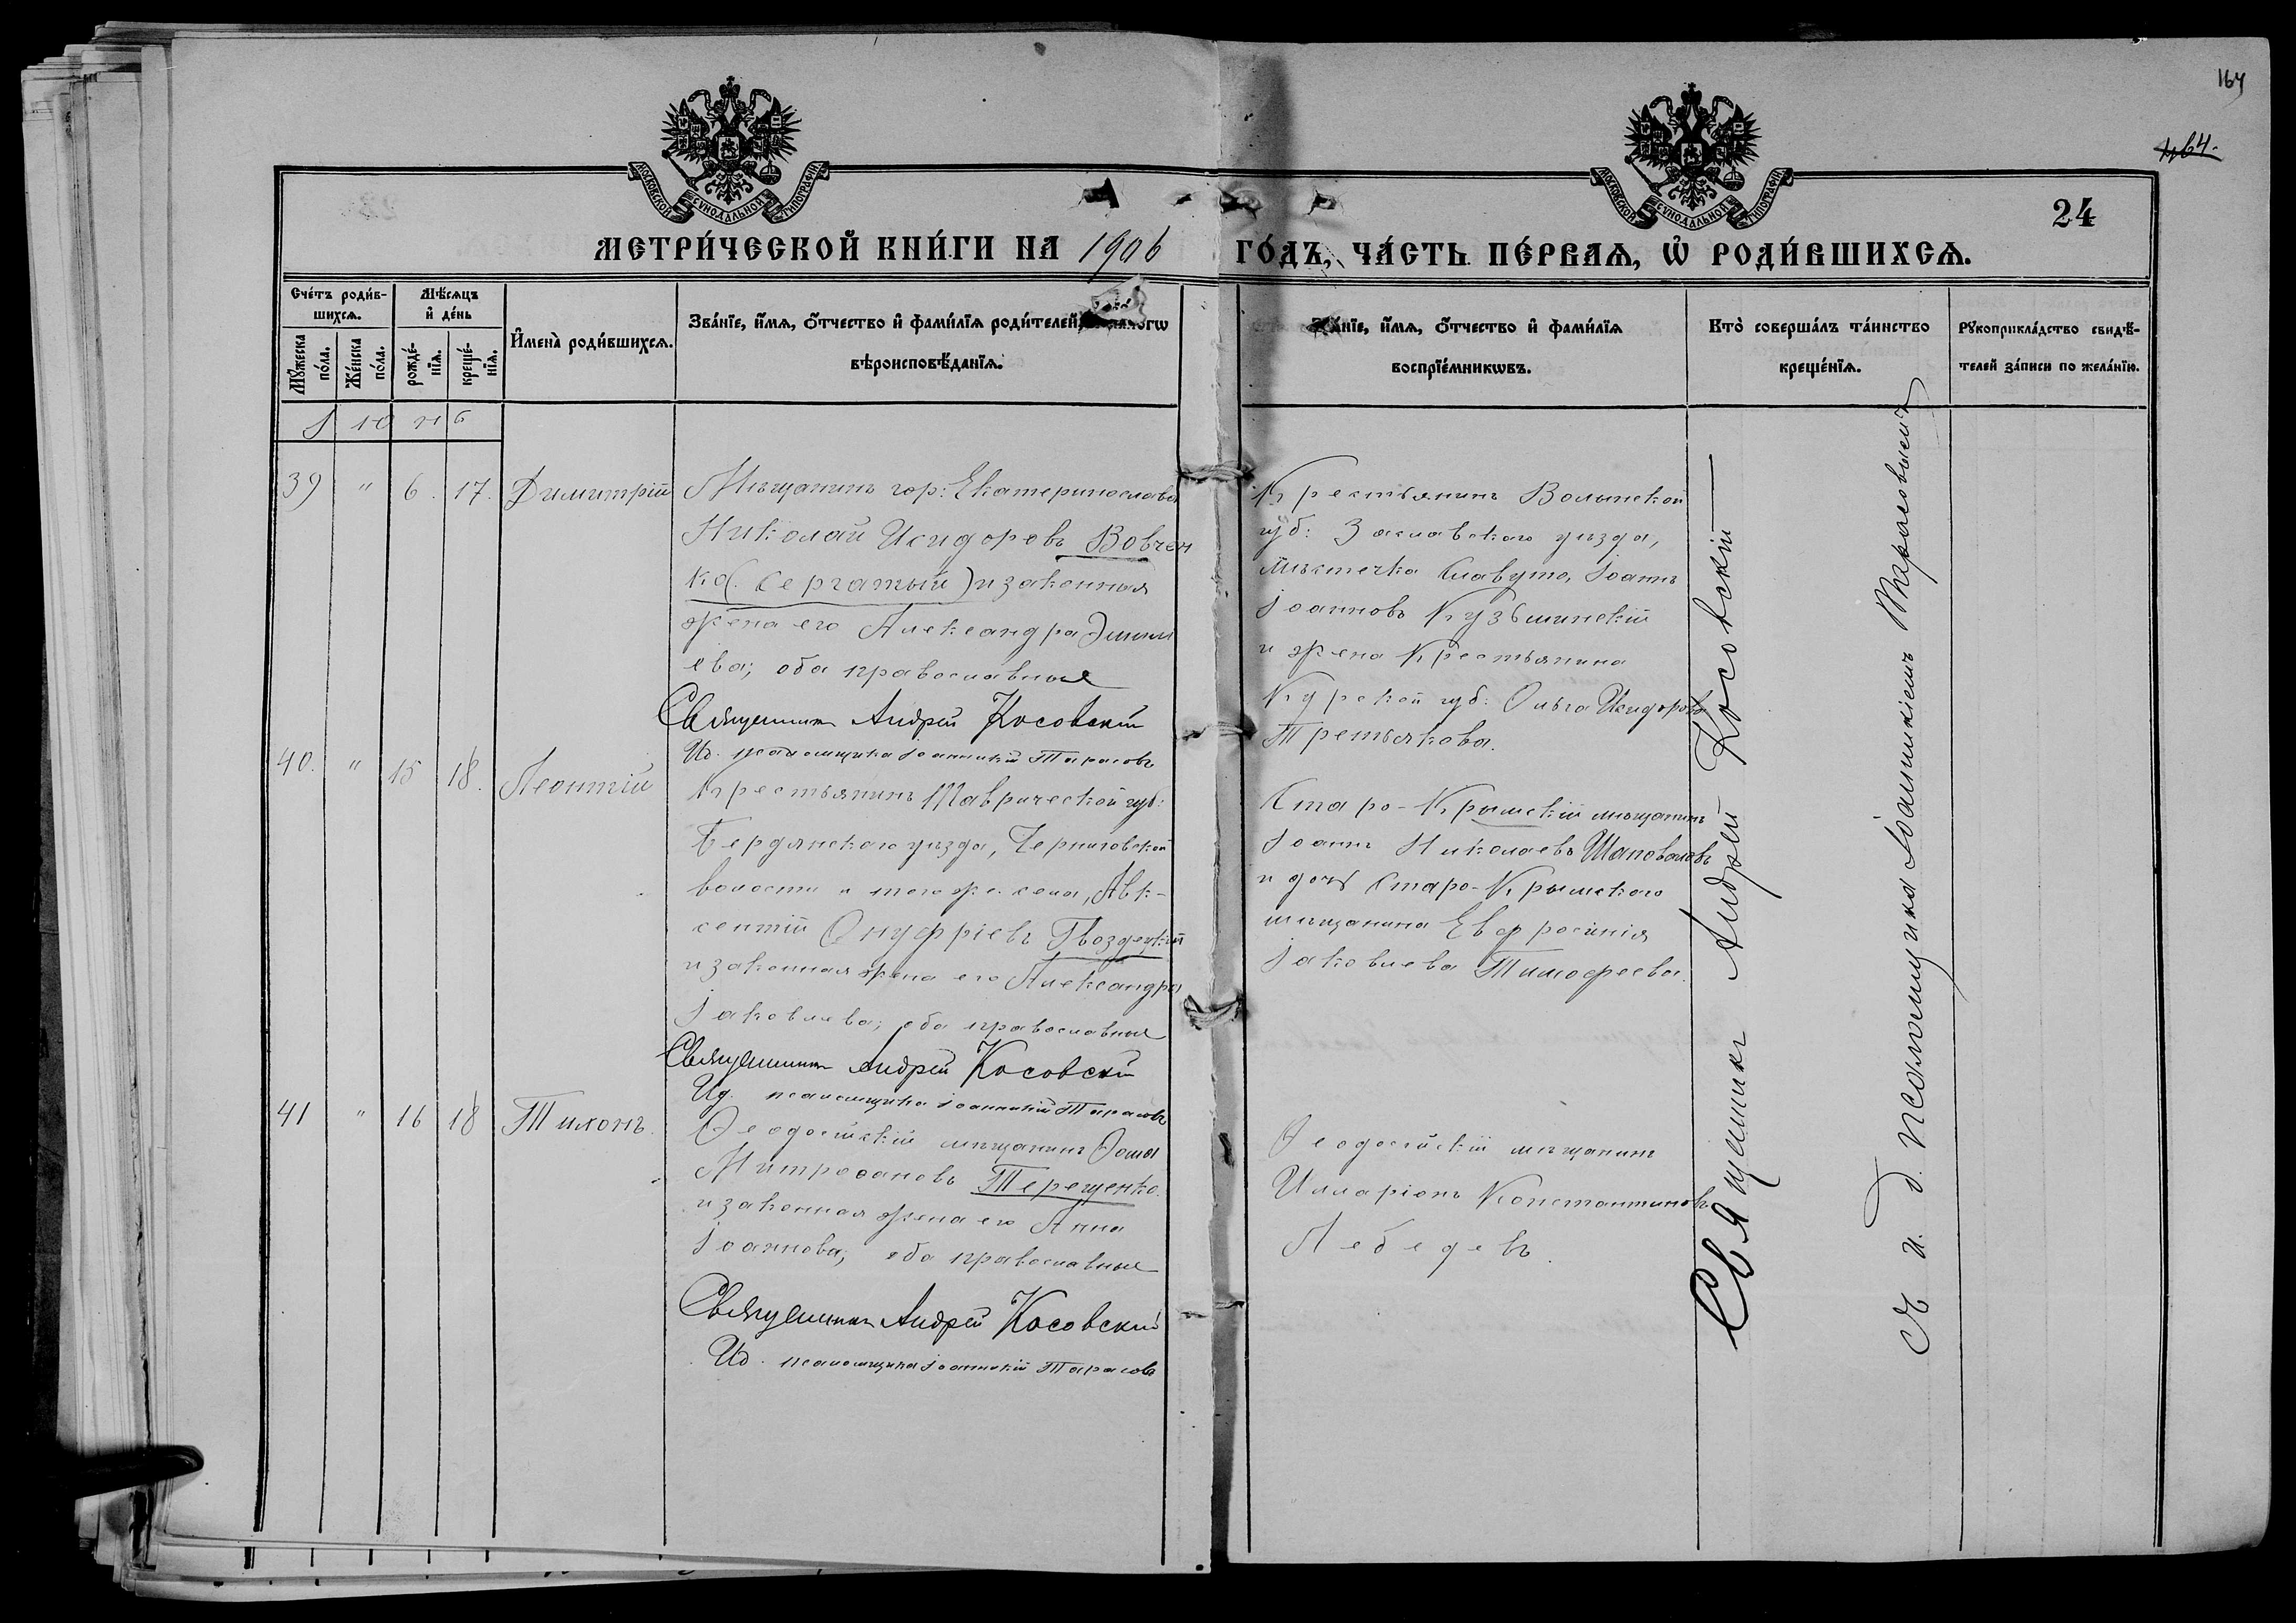 164
164.
МОСКОВСКОЙ СѴНОДАЛЬНОЙ ТИПОГРАФІИ
МОСКОВСКОЙ СѴНОДАЛЬНОЙ ТИПОГРАФІИ
24
МЕТРИ́ЧЕСКОЙ КНИ́ГИ НА 1906
ГО́ДЪ, ЧА́СТЬ ПЕ́РВАѦ, Ѡ҆ РОДИ́ВШИХСѦ.
Сче́тъ роди́в-
шихсѧ.
Мꙋ́жеска по́ла.
Же́нска по́ла.
Мѣ́сѧцъ
и҆ де́нь
рожде́-
нїѧ.
креще́-
нїѧ.
И҆мена̀ роди́вшихсѧ.
Зва́нїе, и҆́мѧ, ѻ҆́тчество и҆ фами́лїѧ роди́телей,
вѣроисповѣ́данїѧ.
Зва́нїе, и҆́мѧ, ѻ҆́тчество и҆ фами́лїѧ
воспрїе́мникѡвъ.
Кто̀ соверша́лъ та́инство
креще́нїѧ.
Рꙋкоприкла́дство свидѣ́-
телей за́писи по жела́нїю.
39 " 6. 17. Димитрій
Мѣщанинъ гор: Екатеринослава
Николай Исидоровъ Вовчен
ко (Сергатый) и законная
жена его Александра Эмили
ева; оба православные
Священникъ Андрей Косовскій
Ид. псаломщика Іоанникій Тарасовъ
Крестьянинъ Волынской
губ: Заславскаго уѣзда,
мѣстечка Славуто, Іоаннъ
Іоанновъ Кузьминскій
и жена Крестьянина
Курской губ: Ольга Исидорова
Третьякова.
40. " 15 18. Леонтій
Крестьянинъ Таврической губ:
Бердянскаго уѣзда, Черниговской
волости и того же села, Авк-
сентій Онуфріевъ Гвоздецкій
и законная жена его Александра
Іаковлева; оба православные
Священникъ Андрей Косовскій
Ид. псаломщика Іоанникій Тарасовъ
Старо-Крымскій мѣщанинъ
Іоаннъ Николаевъ Шаповаловъ
и дочь Старо-Крымскаго
мѣщанина Евфросинія
Іаковлева Тимофеева.
41 " 16 18 Тихонъ
Ѳеодосійскій мѣщанинъ Ѳома
Митрофановъ Терещенко.
и законная жена его Анна
Іоаннова; оба православные
Священникъ Андрей Косовскій
Ид. псаломщика Іоанникій Тарасовъ
Ѳеодосійскій мѣщанинъ
Илларіонъ Константиновъ
Лебедевъ.
Священникъ Андрей Косовскій
съ и. д. псаломщика Іоанникіемъ Тарасовымъ